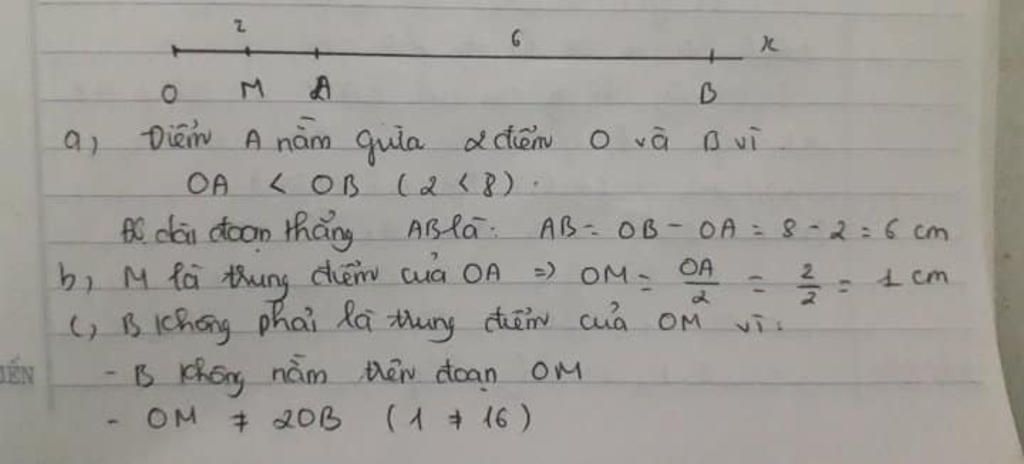 2 6 x
O M A B
a, Điểm A nằm giữa 2 điểm O và B vì
OA < OB (2 < 8).
Độ dài đoạn thẳng AB là: AB = OB - OA = 8 - 2 = 6 cm
b, M là trung điểm của OA => OM = OA/2 = 2/2 = 1 cm
c, B không phải là trung điểm của OM vì:
- B không nằm trên đoạn OM
- OM ≠ 2OB (1 ≠ 16)